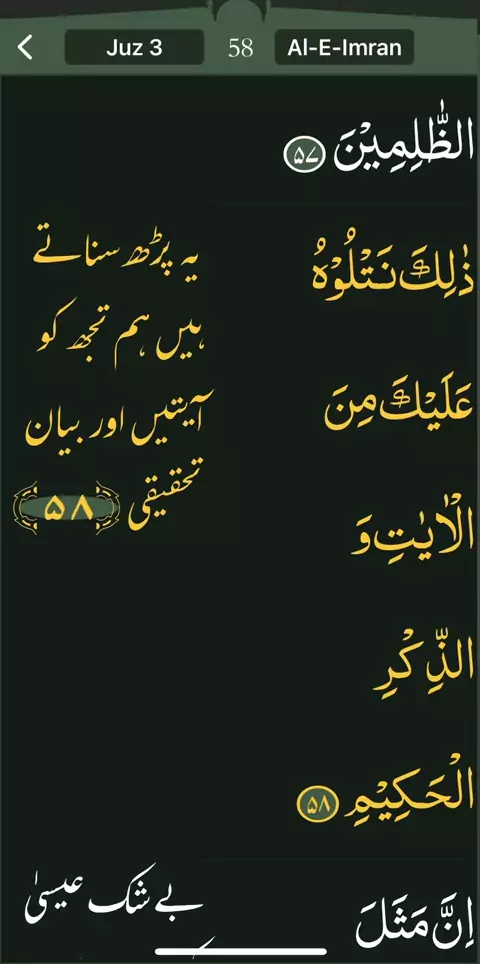 Juz 3 58 Al-E-Imran
الظّٰلِمِیْنَ ۵۷
ذٰلِكَ نَتْلُوْهُ
عَلَیْكَ مِنَ
الْاٰیٰتِ وَ
الذِّكْرِ
الْحَكِیْمِ ۵۸
یہ پڑھ سناتے
ہیں ہم تجھ کو
آیتیں اور بیان
تحقیقی ۵۸
اِنَّ مَثَلَ
بے شک عیسیٰ